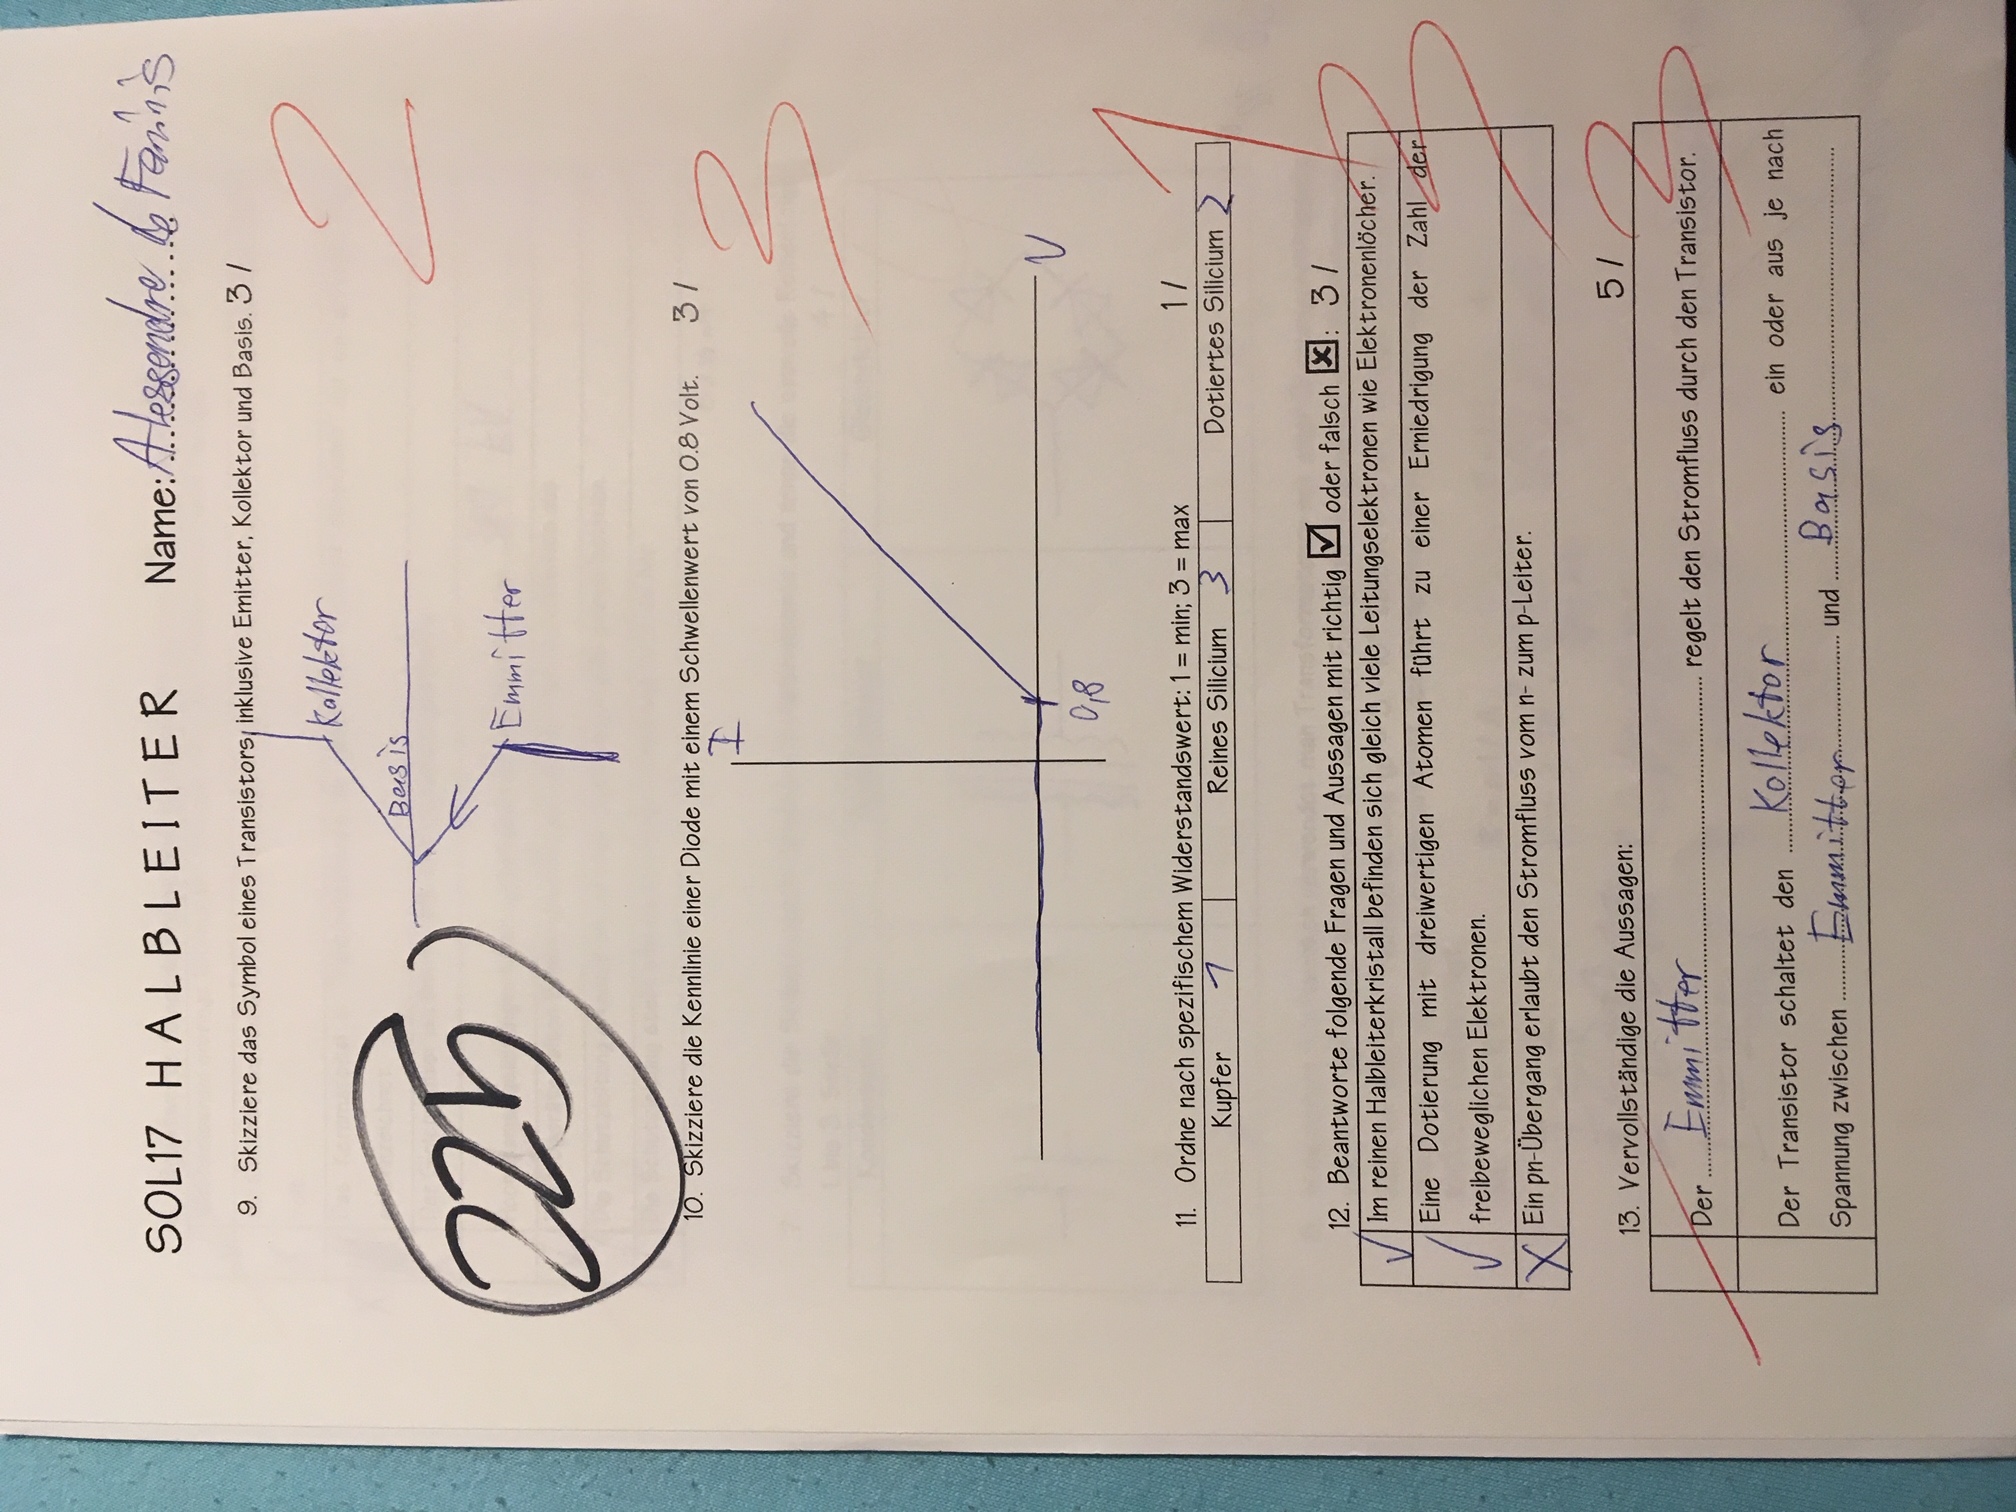 SOL17 HALBLEITER Name: Alessandre de Faninis
9. Skizziere das Symbol eines Transistors, inklusive Emitter, Kollektor und Basis. 3 /
2
Kollektor
Basis
225
Emmitter
10. Skizziere die Kennlinie einer Diode mit einem Schwellenwert von 0.8 Volt. 3 /
3
I
V
0,8
11. Ordne nach spezifischem Widerstandswert: 1 = min; 3 = max 1 /
1
Kupfer 1 Reines Silicium 3 Dotiertes Silicium 2
12. Beantworte folgende Fragen und Aussagen mit richtig ☑ oder falsch ☒: 3 /
3
✓ Im reinen Halbleiterkristall befinden sich gleich viele Leitungselektronen wie Elektronenlöcher.
✓ Eine Dotierung mit dreiwertigen Atomen führt zu einer Erniedrigung der Zahl der
freibeweglichen Elektronen.
X Ein pn-Übergang erlaubt den Stromfluss vom n- zum p-Leiter.
13. Vervollständige die Aussagen: 5 /
3
Der Emmitter regelt den Stromfluss durch den Transistor.
Der Transistor schaltet den Kollektor ein oder aus je nach
Spannung zwischen Emmitter und Basis